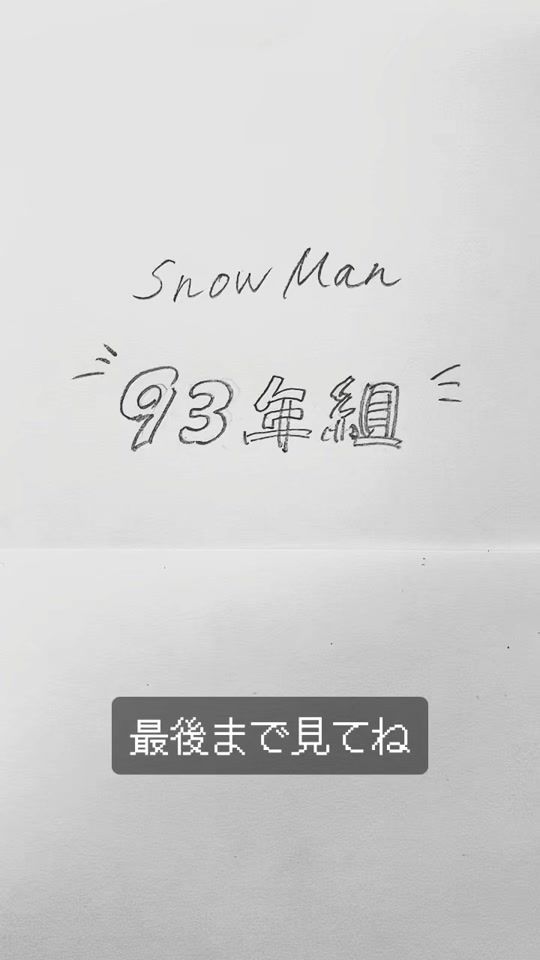 Snow Man
93年組
最後まで見てね